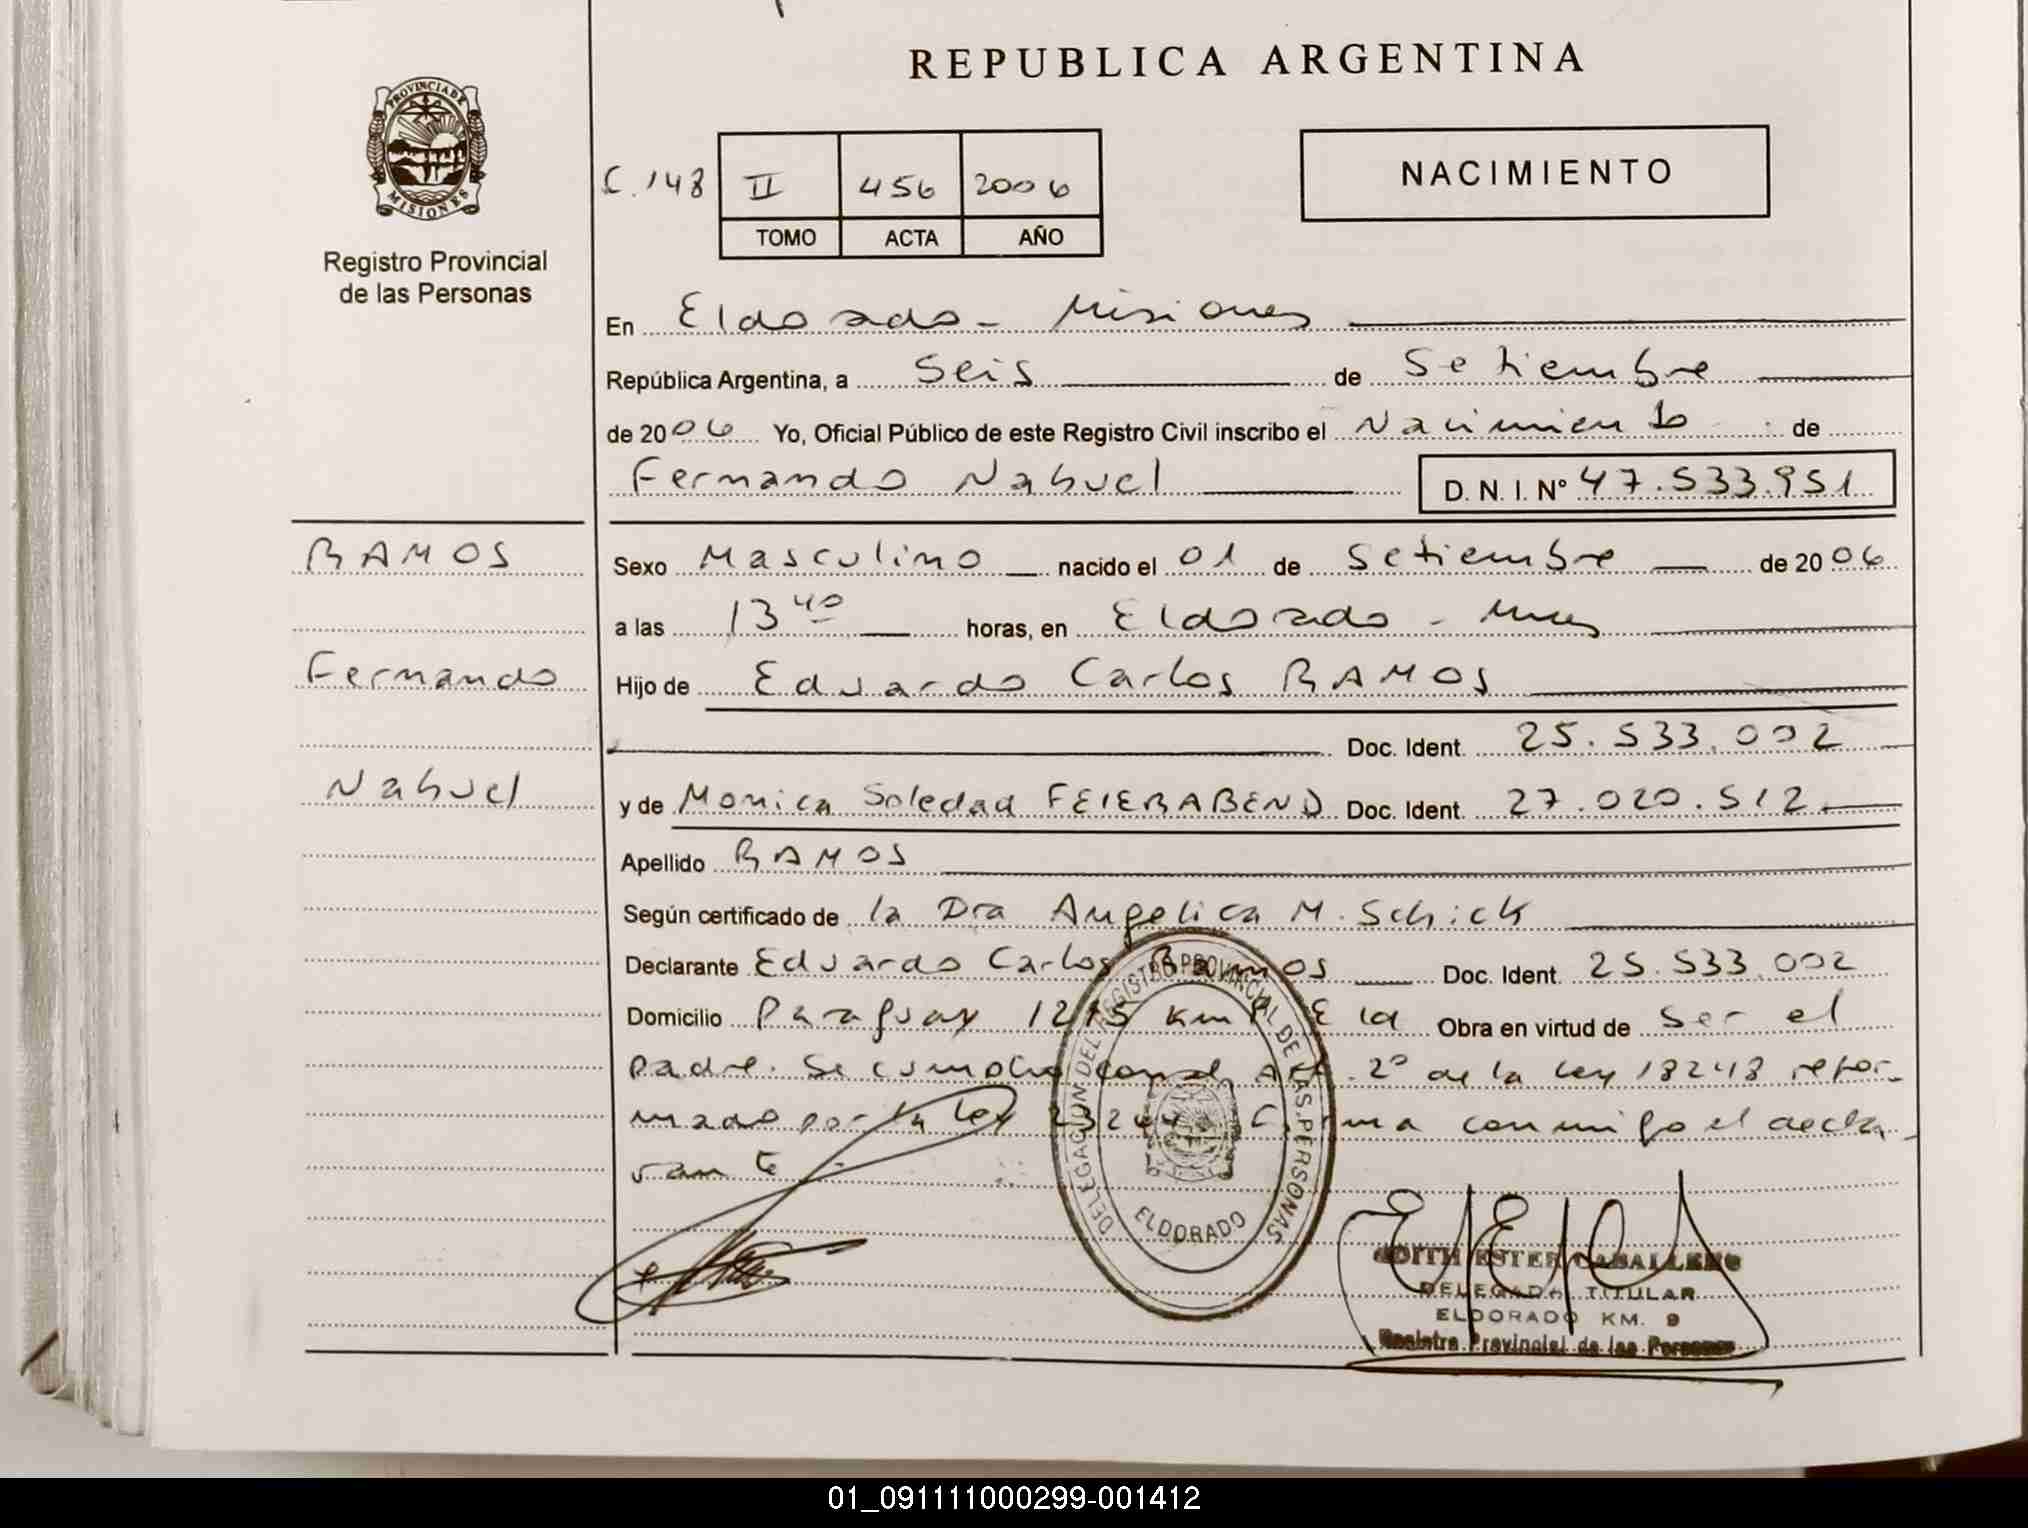 REPUBLICA ARGENTINA
PROVINCIA DE MISIONES
Registro Provincial
de las Personas
C. 148 II 456 2006
TOMO ACTA AÑO
NACIMIENTO
En Eldorado - Misiones
República Argentina, a Seis de Setiembre
de 2006 Yo, Oficial Público de este Registro Civil inscribo el Nacimiento de
Fernando Nahuel D. N. I. Nº 47.533.951
RAMOS
Fernando
Nahuel
Sexo Masculino nacido el 01 de Setiembre de 2006
a las 13 40 horas, en Eldorado - Mnes
Hijo de Eduardo Carlos RAMOS
Doc. Ident. 25.533.002
y de Monica Soledad FEIERABEND Doc. Ident. 27.020.512.
Apellido RAMOS
Según certificado de la Dra Angelica M. Schick
Declarante Eduardo Carlos Ramos Doc. Ident. 25.533.002
Domicilio Paraguay 1215 Km Eld Obra en virtud de ser el
padre. Se cumplio con el Art. 2º de la Ley 18248 refor-
mado por la Ley Firma conmigo el decla-
rante
DELEGACION DEL REGISTRO PROVINCIAL DE LAS PERSONAS
ELDORADO
EDITH ESTER CABALLERO
DELEGADA TITULAR
ELDORADO KM. 9
Registro Provincial de las Personas
01_091111000299-001412